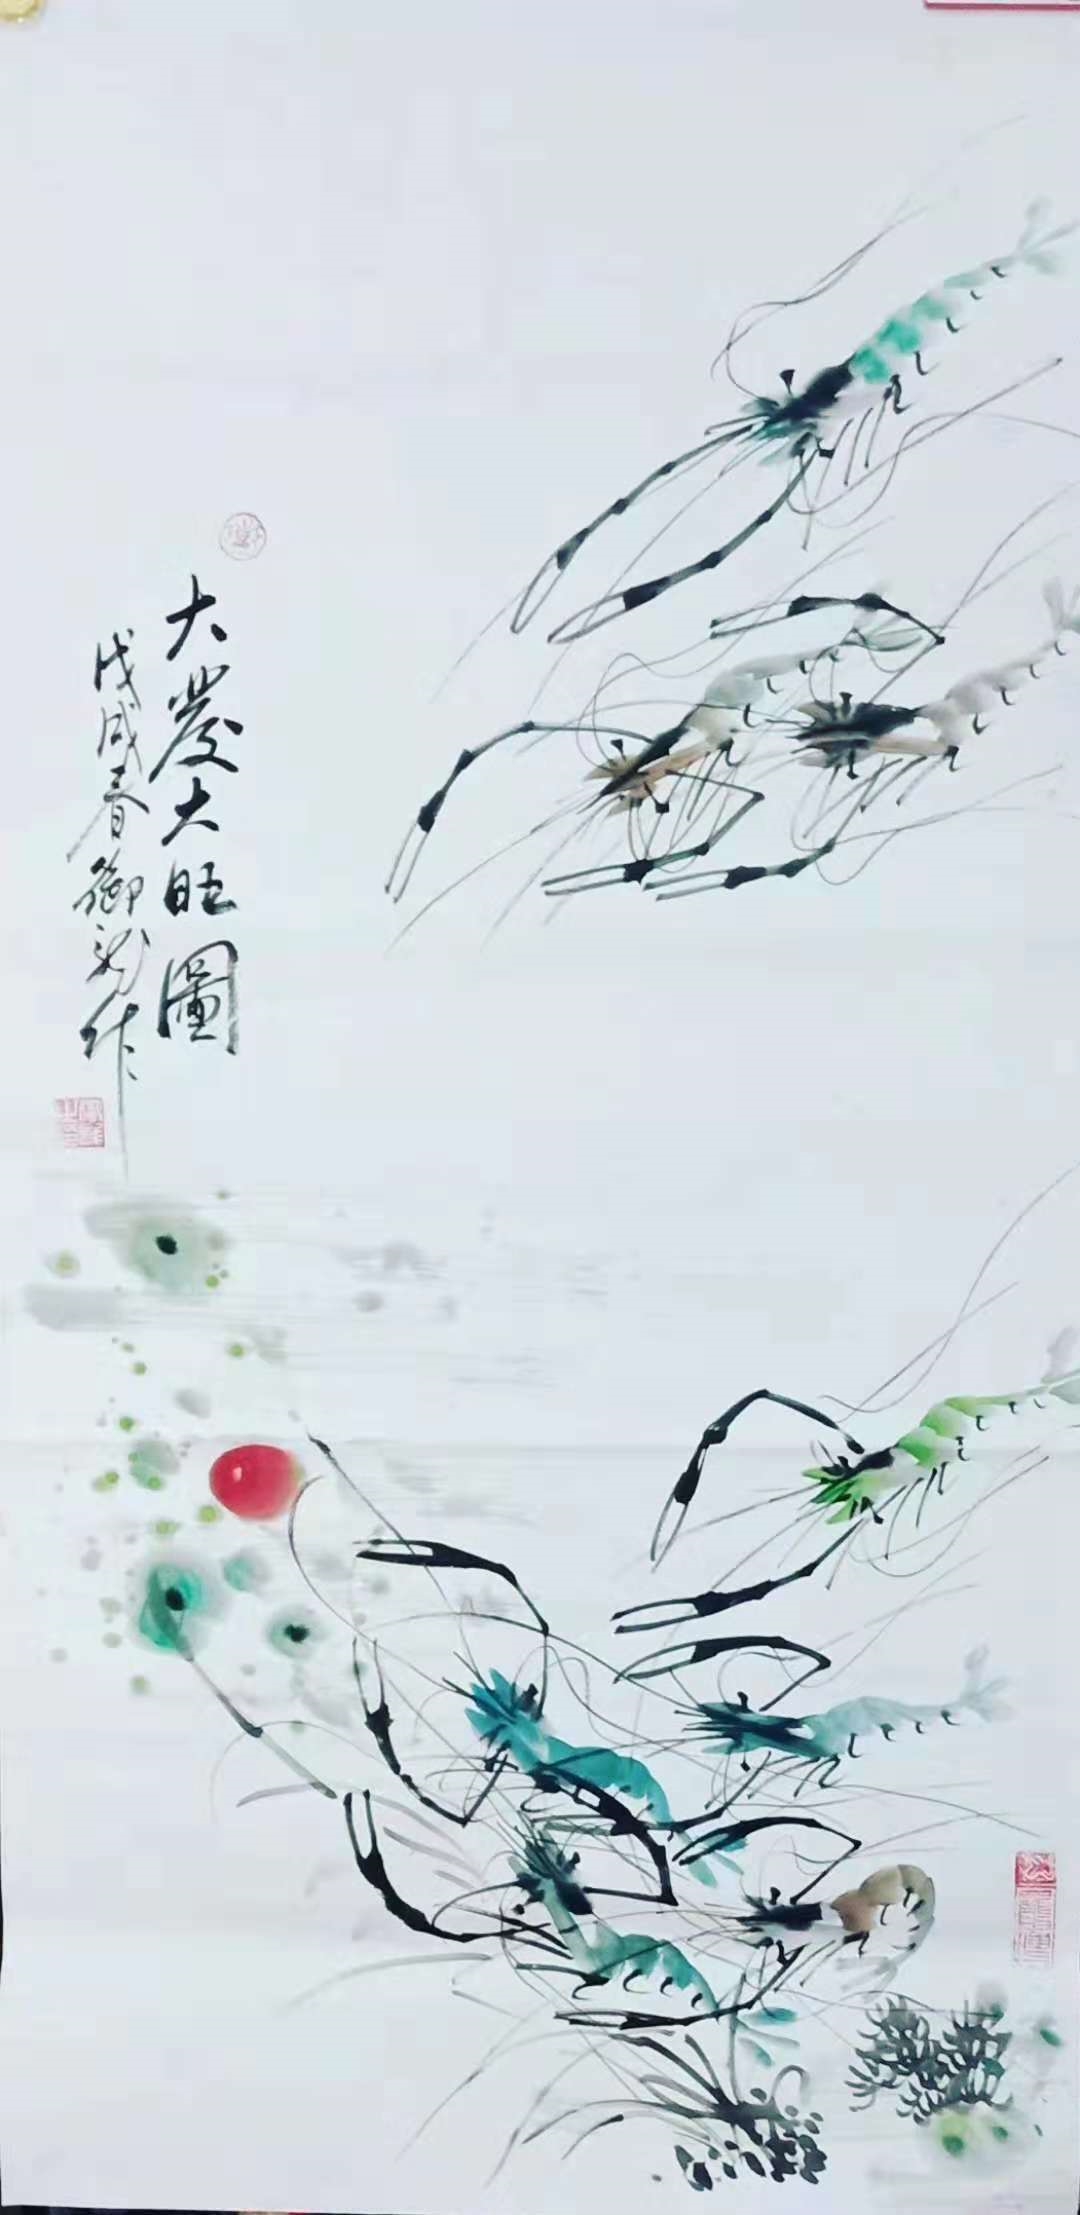 大發大旺圖
戊戌春御龍作